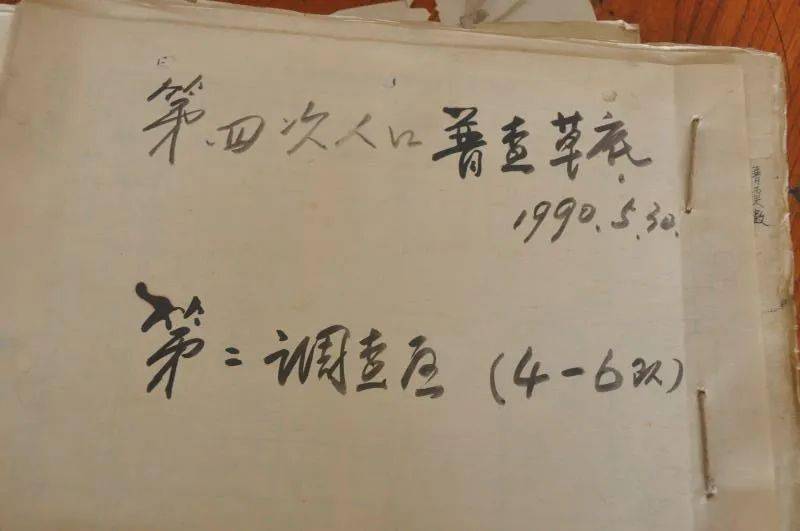 第四次人口普查草底
1990.5.30.
第二调查区（4-6队）